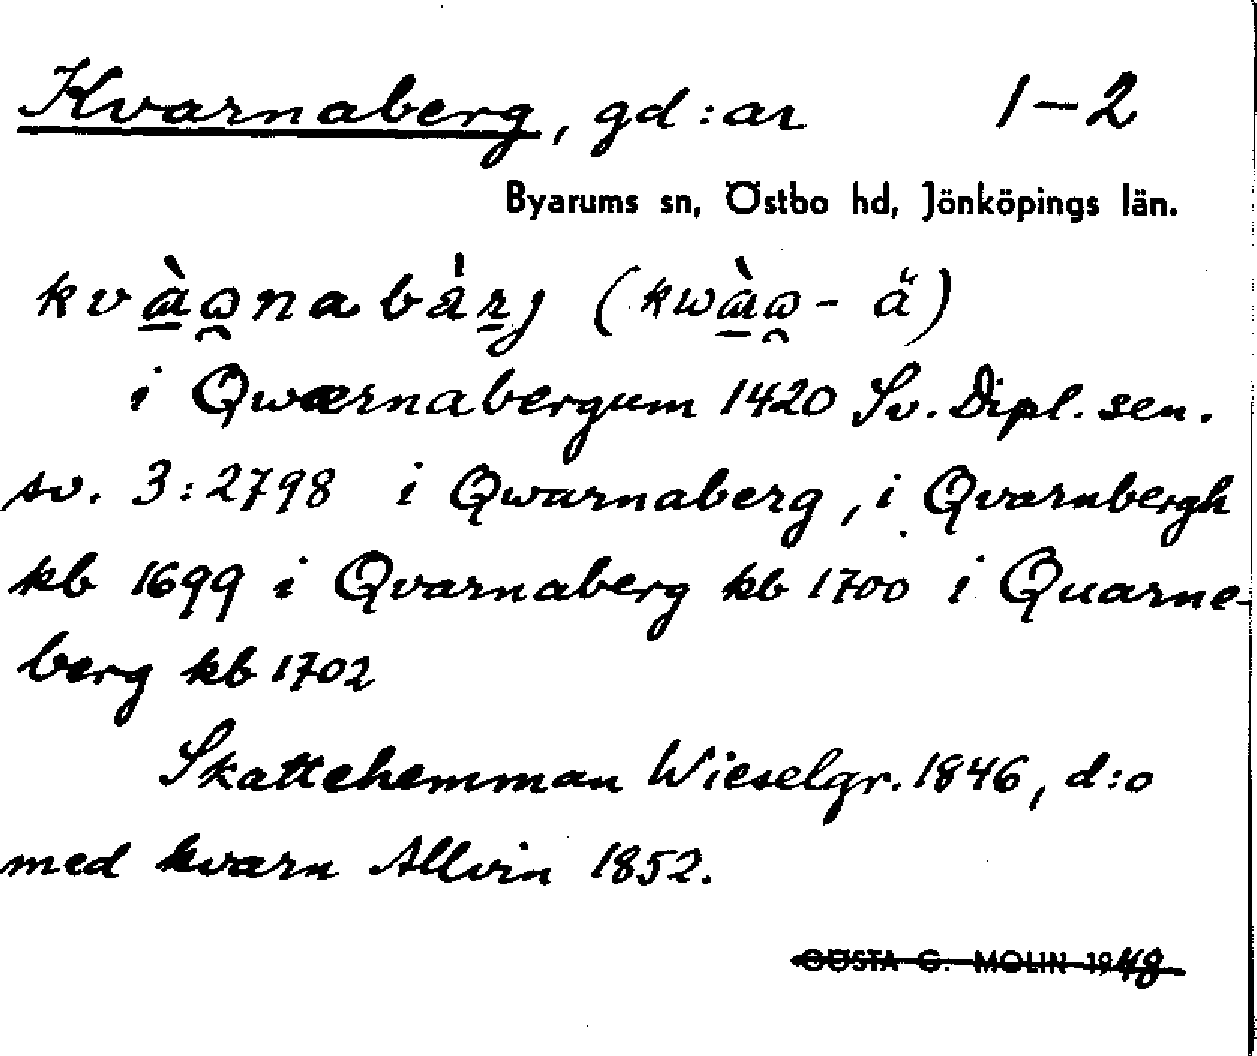 Kvarnaberg, gd:ar 1–2
Byarums sn, Östbo hd, Jönköpings län.
i Qwærnabergum 1420 Sv. Dipl. sen.
sv. 3:2798 i Qwarnaberg, i Qvarnbergh
kb 1699 i Qvarnaberg kb 1700 i Quarne-
berg kb 1702
Skattehemman Wieselgr. 1846, d:o
med kvarn Allvin 1852.
GÖSTA G. MOLIN 1948